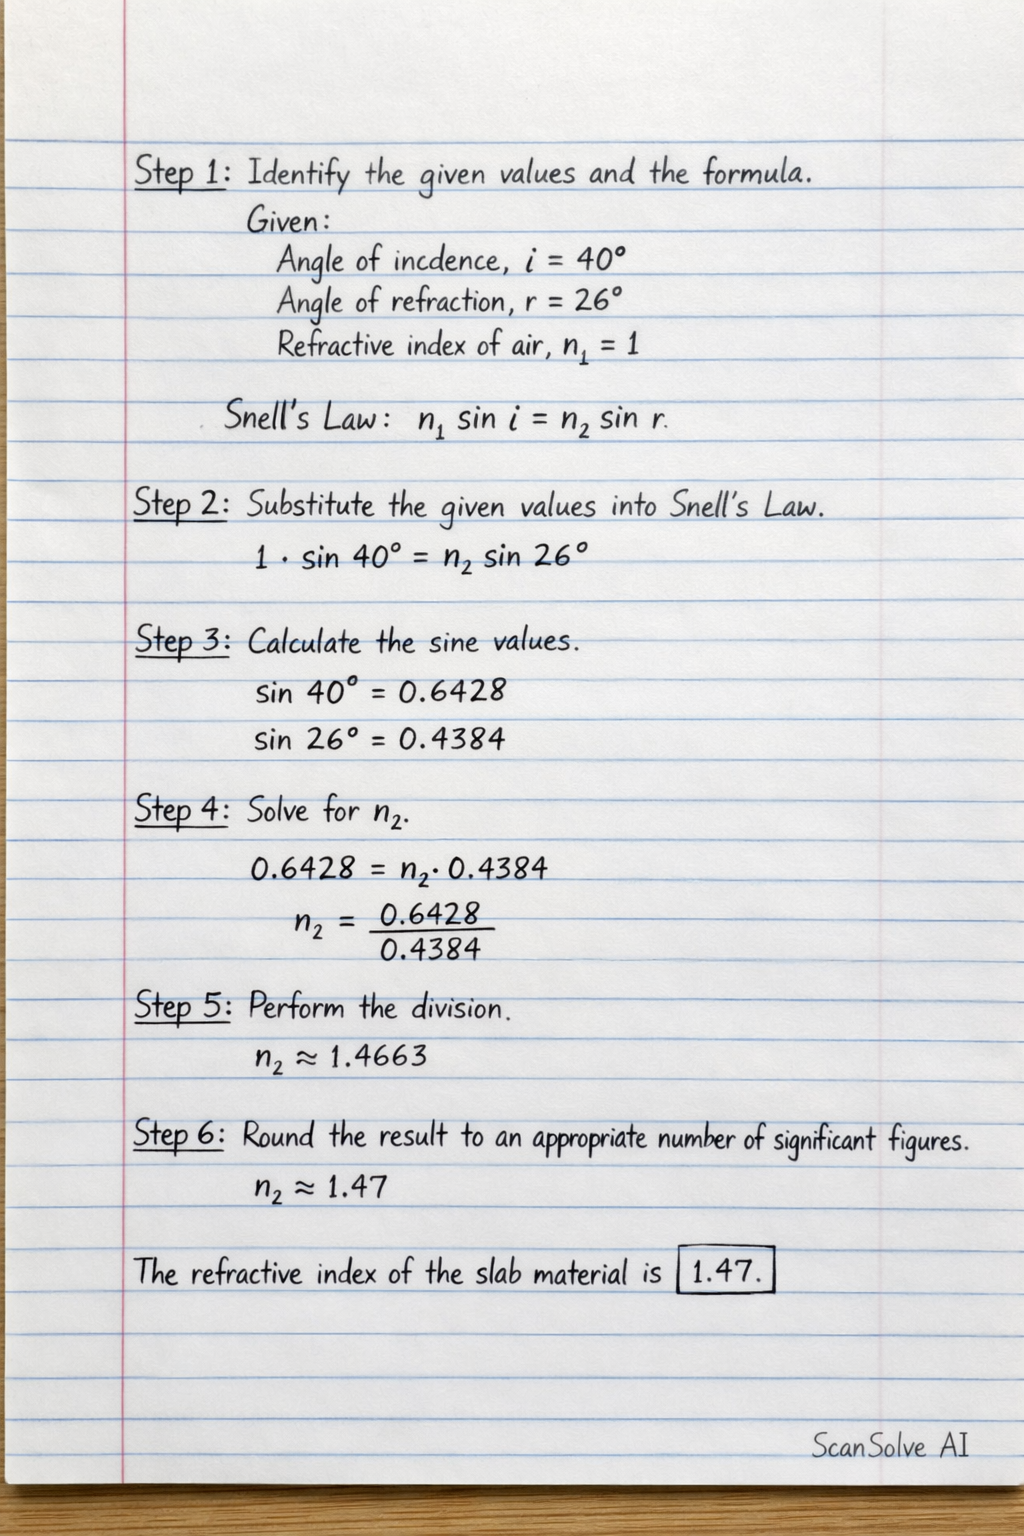 Step 1: Identify the given values and the formula.
Given:
Angle of incdence, i = 40°
Angle of refraction, r = 26°
Refractive index of air, n₁ = 1
Snell's Law: n₁ sin i = n₂ sin r.
Step 2: Substitute the given values into Snell's Law.
1 · sin 40° = n₂ sin 26°
Step 3: Calculate the sine values.
sin 40° = 0.6428
sin 26° = 0.4384
Step 4: Solve for n₂.
0.6428 = n₂ · 0.4384
n₂ = 0.6428
0.4384
Step 5: Perform the division.
n₂ ≈ 1.4663
Step 6: Round the result to an appropriate number of significant figures.
n₂ ≈ 1.47
The refractive index of the slab material is 1.47.
ScanSolve AI